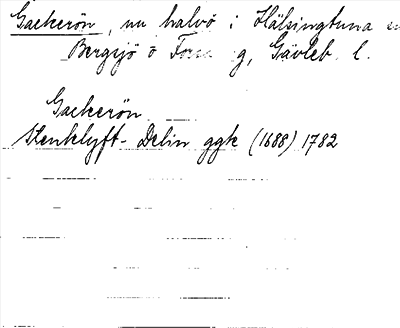 Gackerön, nu halvö i Hälsingtuna
Bergsjö o g, Gävleb. l.
Gackerön
Stenklyft- Delin ggk (1688) 1782